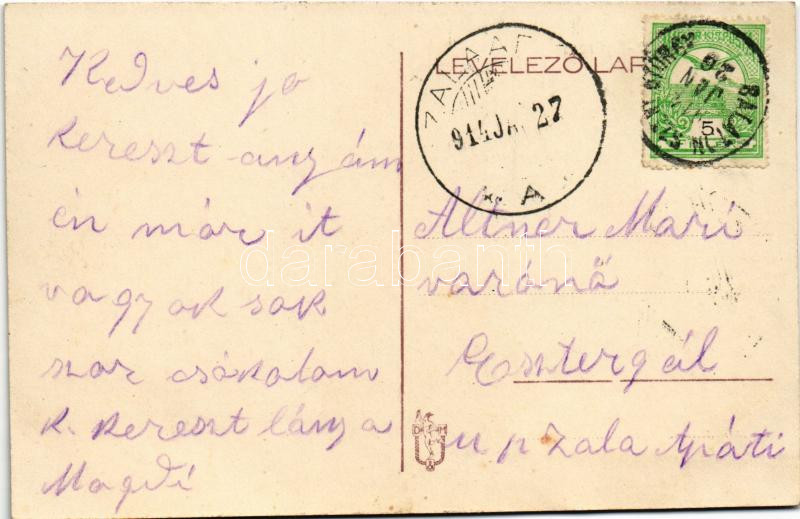 Kedves jo
kereszt anyám
én már it
vagyok sok
szor csókolom
k. kereszt lánya
Magdi
LEVELEZŐ LAP
914 JAN 27
A
5
Altner Mari
varónő
Esztergál
u p Zala Apáti
darabanth